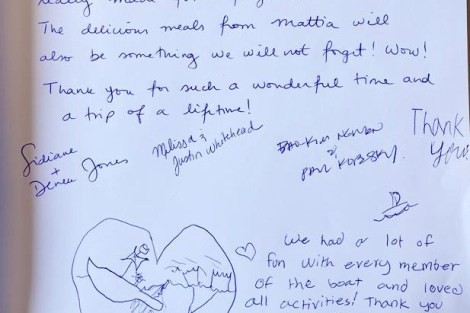 The delicious meals from mattia will
also be something we will not forget! Wow!
Thank you for such a wonderful time and
a trip of a lifetime!
Jones
Melissa &
Justin Whitehead
&
Thank
you!
We had a lot of
fun with every member
of the boat and loved
all activities! Thank you